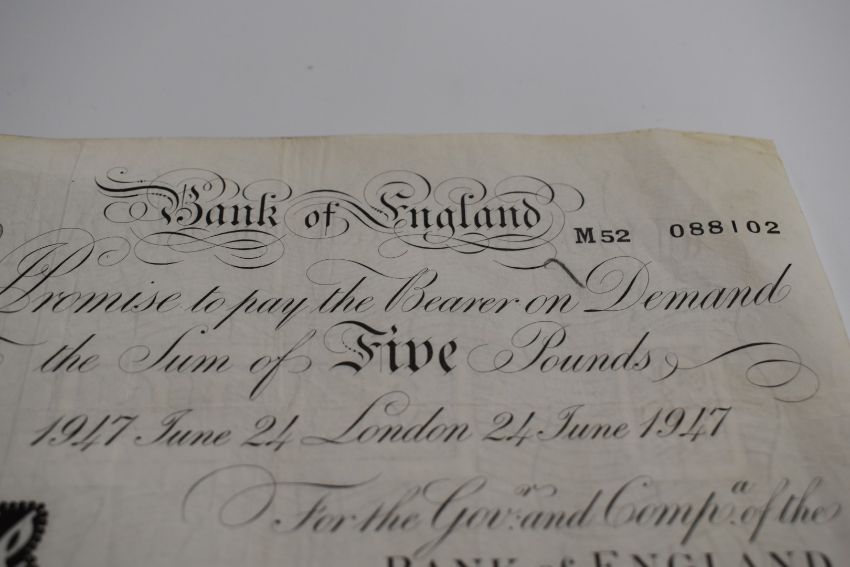 Bank of England M52 088102
Promise to pay the Bearer on Demand
the Sum of Five Pounds
1947 June 24 London 24 June 1947
For the Gov.r and Comp.a of the
BANK of ENGLAND